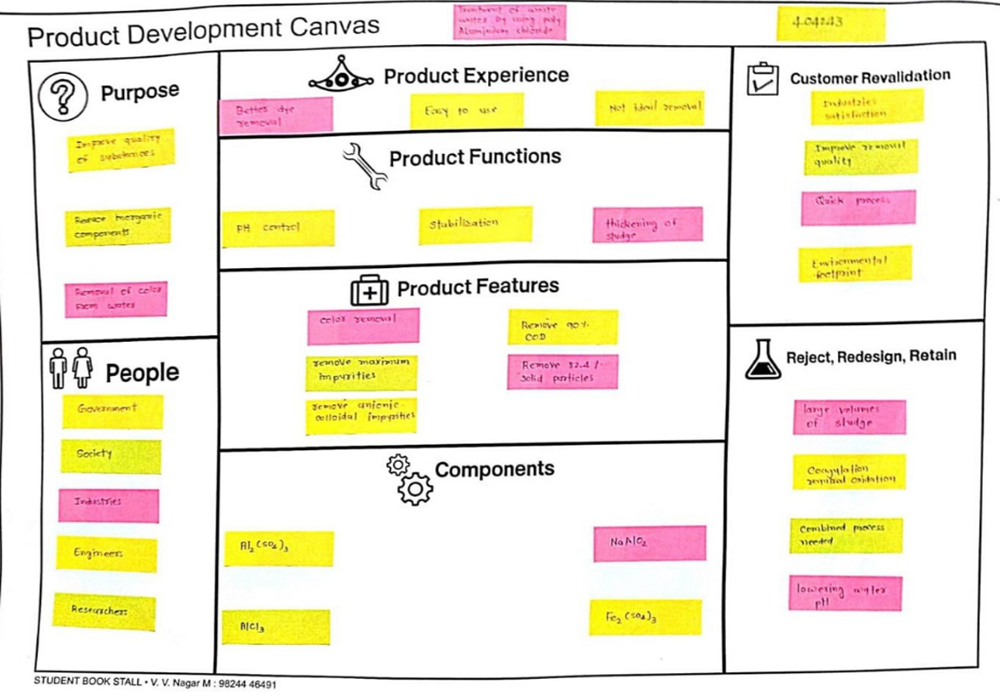 Product Development Canvas
Treatment of waste
water by using poly
Aluminium chloride
404143
Purpose
Improve quality
of substances
Reduce inorganic
components
Removal of color
from water
People
Government
Society
Industries
Engineers
Researchers
Product Experience
Better dye
removal
Easy to use
Not ideal removal
Product Functions
PH control
Stabilisation
thickening of
sludge
Product Features
color removal
Remove 90%
COD
remove maximum
impurities
Remove 92.4%
solid particles
remove anionic
colloidal impurities
Components
Al₂(SO₄)₃
NaAlO₂
AlCl₃
Fe₂(SO₄)₃
Customer Revalidation
Industries
satisfaction
Improve removal
quality
Quick process
Environmental
footprint
Reject, Redesign, Retain
large volumes
of sludge
Coagulation
required oxidation
Combined process
needed
lowering water
pH
STUDENT BOOK STALL • V. V. Nagar M : 98244 46491